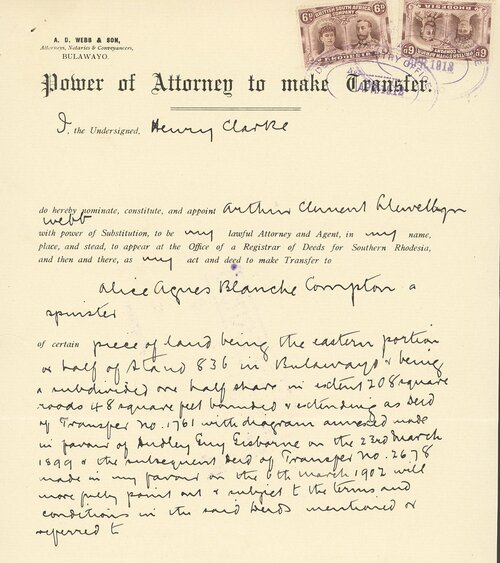 A. D. WEBB & SON,
Attorneys, Notaries & Conveyancers,
BULAWAYO.
6D BRITISH SOUTH AFRICA COMPANY 6D
RHODESIA
BRITISH SOUTH AFRICA COMPANY
APR 1912
APR 1912
Power of Attorney to make Transfer.
I, the Undersigned, Henry Clarke
do hereby nominate, constitute, and appoint Arthur Clement Llewellyn
Webb
with power of Substitution, to be my lawful Attorney and Agent, in my name,
place, and stead, to appear at the Office of a Registrar of Deeds for Southern Rhodesia,
and then and there, as my act and deed to make Transfer to
Alice Agnes Blanche Compton a
spinster
of certain piece of land being the eastern portion
or half of Stand 836 in Bulawayo & being
a subdivided one half share in extent 208 square
roods 48 square feet bounded & extending as Deed
of Transfer No. 1761 with diagram annexed made
in favour of Dudley Guy Gisborne on the 23rd March
1899 & the subsequent Deed of Transfer No. 2678
made in my favour on the 6th March 1902 will
more fully point out & subject to the terms and
conditions in the said Deeds mentioned or
referred to